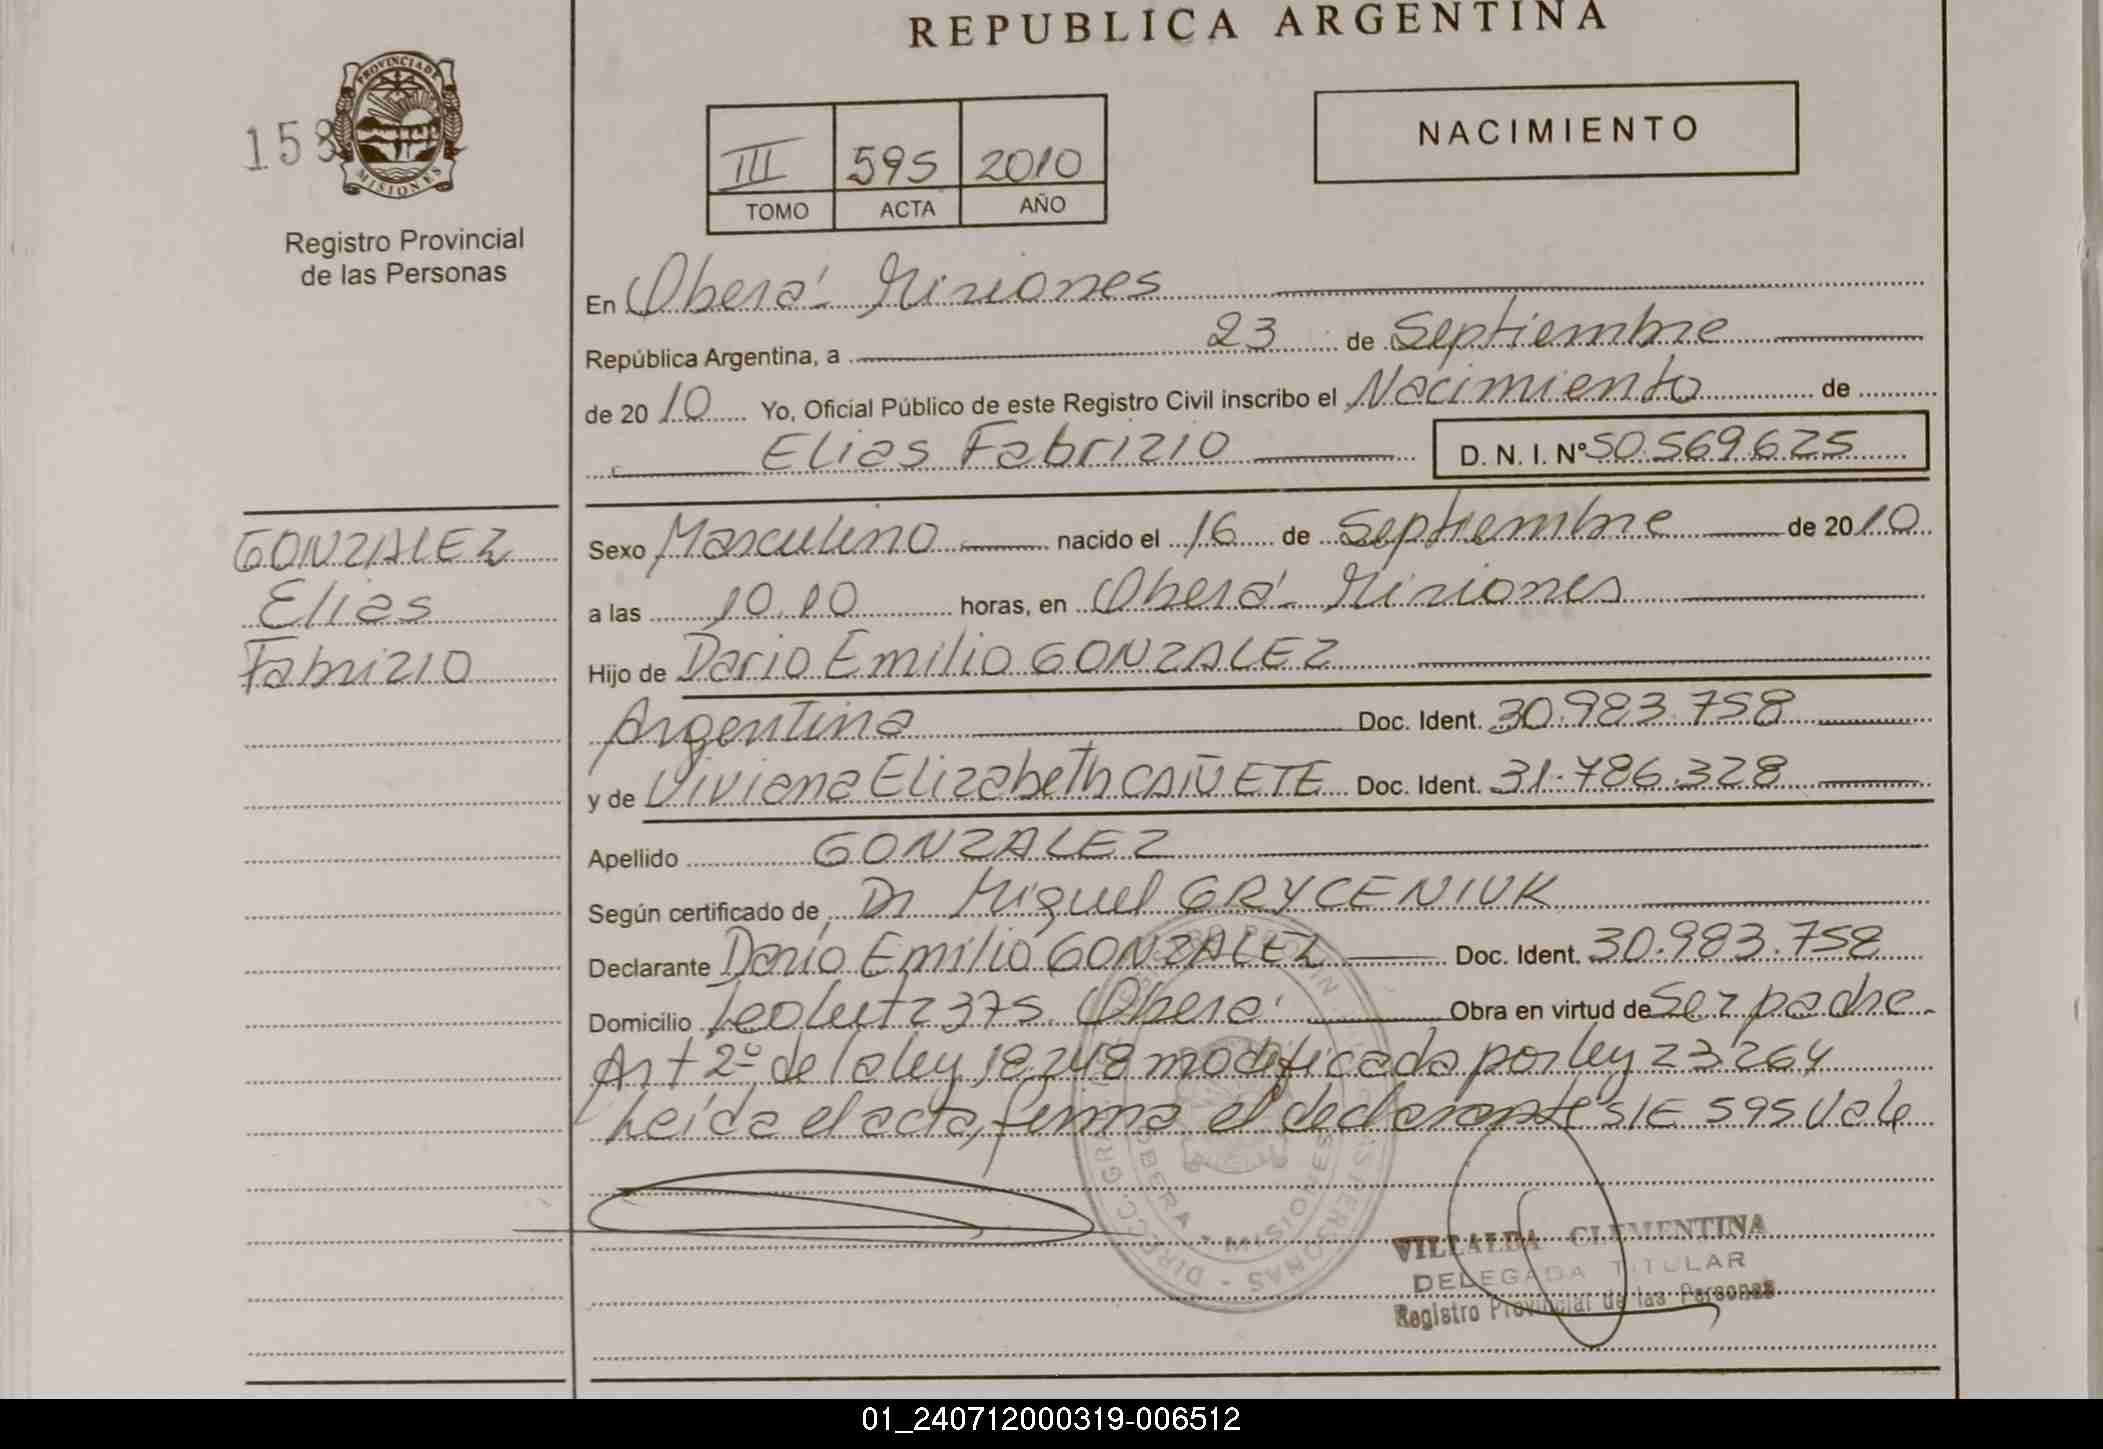 REPUBLICA ARGENTINA
158
PROVINCIA DE MISIONES
Registro Provincial
de las Personas
III 595 2010
TOMO ACTA AÑO
NACIMIENTO
En Oberá Misiones
República Argentina, a 23 de Septiembre
de 2010 Yo, Oficial Público de este Registro Civil inscribo el Nacimiento de
Elias Fabrizio D. N. I. Nº 50.569.625
GONZALEZ
Elias
Fabrizio
Sexo Masculino nacido el 16 de Septiembre de 2010
a las 10.10 horas, en Oberá Misiones
Hijo de Dario Emilio GONZALEZ
Argentina Doc. Ident. 30.983.758
y de Viviana Elizabeth CAÑETE Doc. Ident. 31.786.328
Apellido GONZALEZ
Según certificado de Dr Miguel GRYCENIUK
Declarante Dario Emilio GONZALEZ Doc. Ident. 30.983.758
Domicilio Leo Lutz 375 Oberá Obra en virtud de Ser padre
Art 2º de la ley 18.248 modificada por ley 23264
Leída el acta, firma el declarante S/E 595 Vale
OBERA MISIONES
VILLALBA CLEMENTINA
DELEGADA TITULAR
Registro Provincial de las Personas
01_240712000319-006512